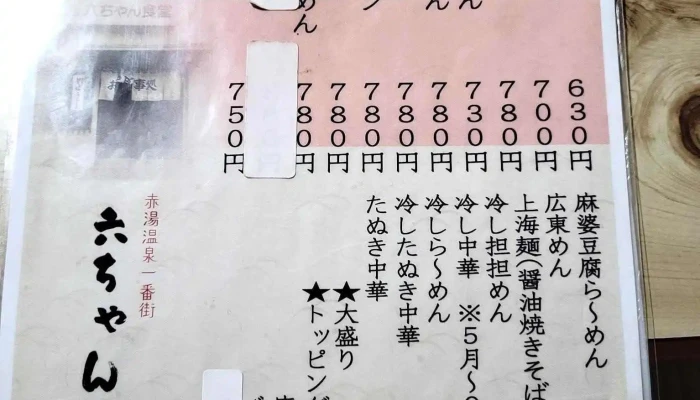 めん
ん
ん
630円
700円
780円
730円
780円
780円
780円
780円
780円
750円
麻婆豆腐ら〜めん
広東めん
上海麺(醤油焼きそば
冷し担担めん
冷し中華 ※5月〜
冷しら〜めん
冷したぬき中華
たぬき中華
★大盛り
★トッピング
赤湯温泉一番街
六ちゃん
六ちゃん食堂
お食事処